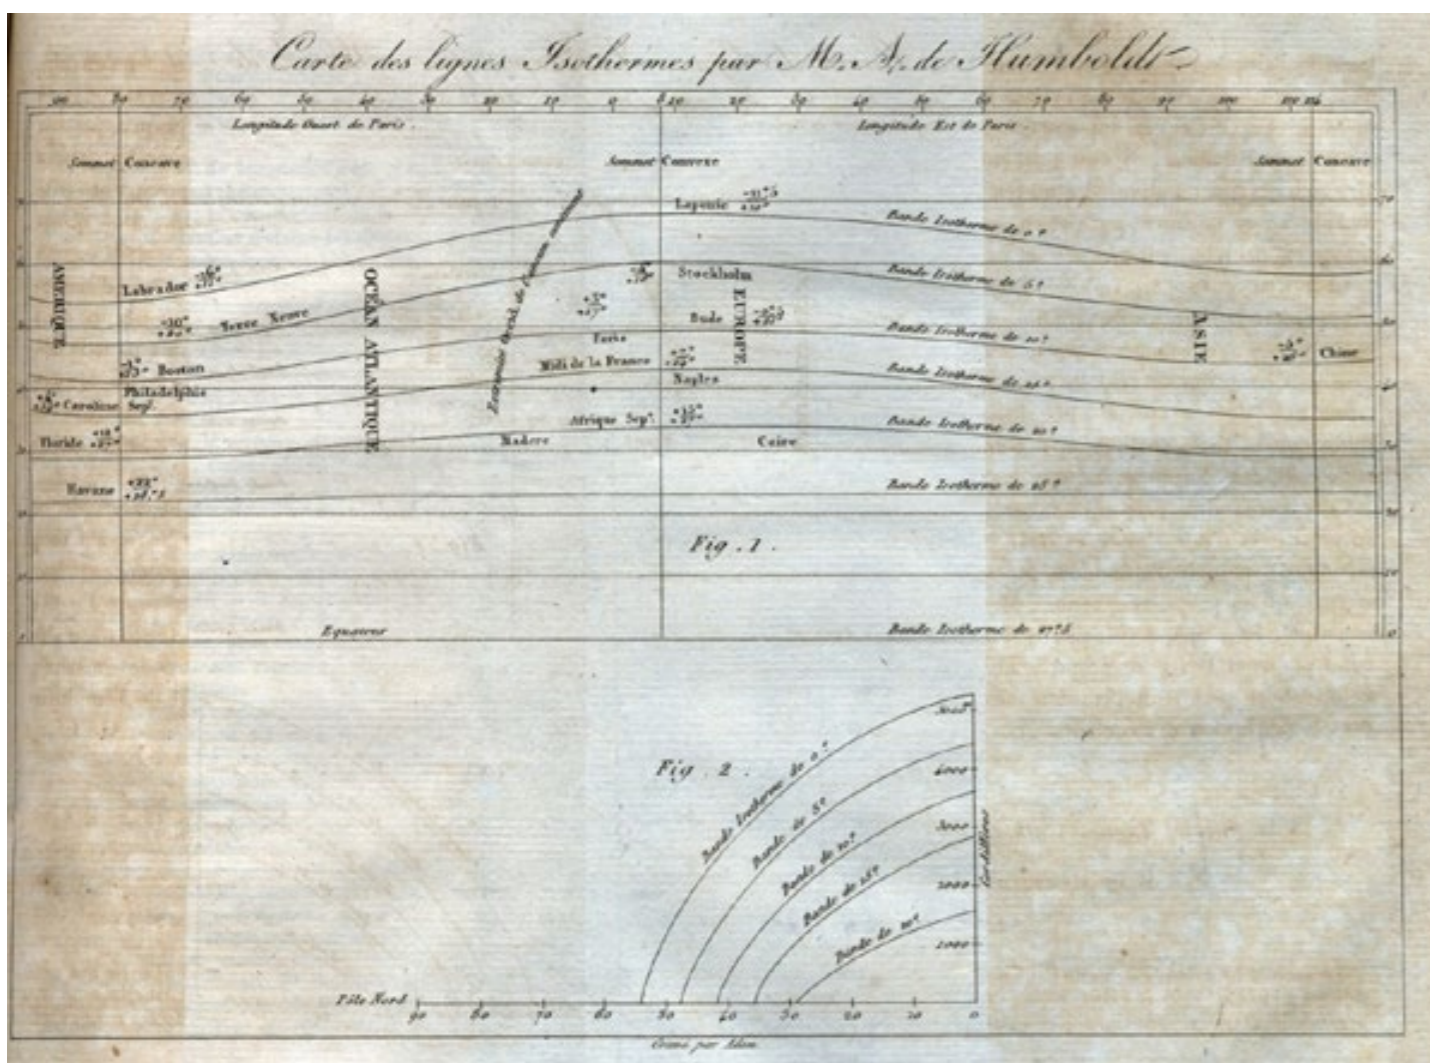 Carte des lignes Isothermes par M. A. de Humboldt
80 70 60 50 40 30 20 10 0 8 10 20 30 40 50 60 70 80 90 100 110 116
Longitude Ouest de Paris.
Longitude Est de Paris.
Sommet Concave
Sommet Convexe
Sommet Concave
Laponie
Bande Isotherme de 0°
AMERIQUE
Labrador
OCÉAN ATLANTIQUE
Stockholm
Bande Isotherme de 5°
Terre Neuve
EUROPE
Bude
ASIE
Paris
Bande Isotherme de 10°
Chine
Boston
Midi de la France
Naples
Bande Isotherme de 15°
Philadelphie
Caroline Sepl.
Afrique Sepl.
Bande Isotherme de 20°
Floride
Madere
Caire
Havane +22°
Bande Isotherme de 25°
Fig. 1.
Equateur
Bande Isotherme de 27°5
Fig. 2.
Bande Isotherme de 0°
Bande de 5°
Bande de 10°
Bande de 15°
Bande de 20°
3000
2000
1000
Cordillères
Pôle Nord
90 80 70 60 50 40 30 20 10 0
Gravé par Adam